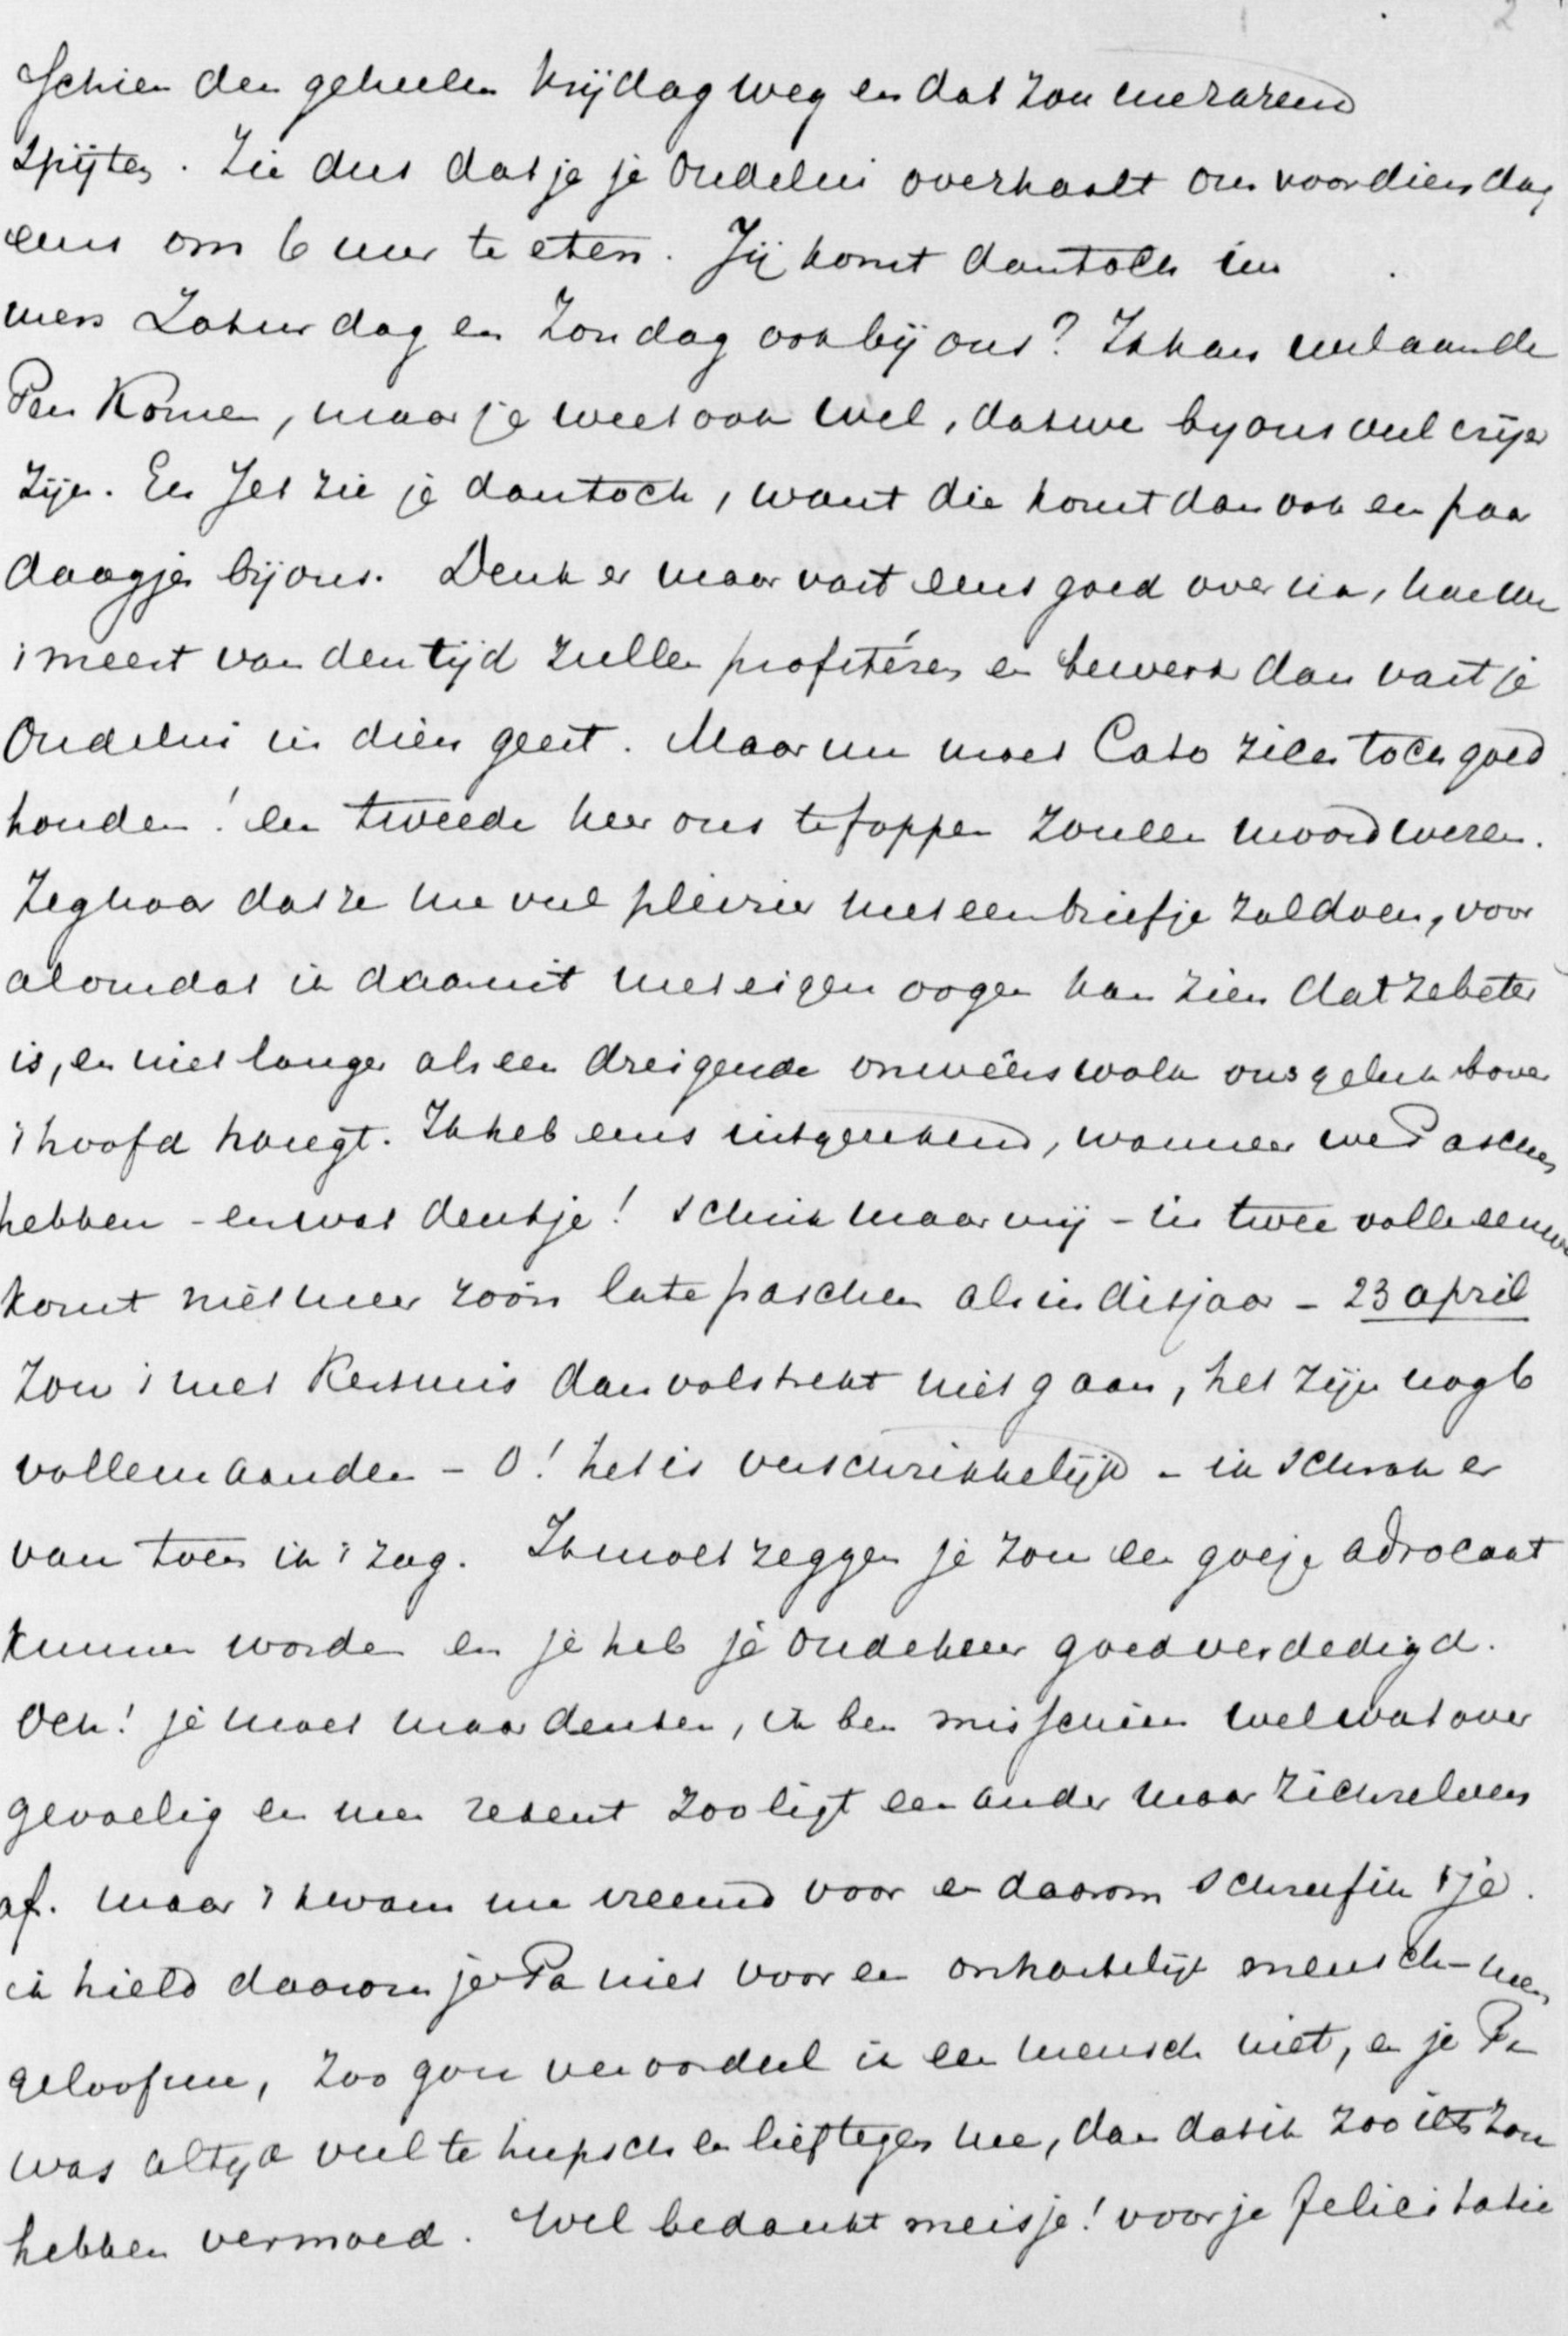 2
schien den geheelen Vrijdag weg en dat zou me razend
spijten. Zie dus dat je je oudelui overhaalt om voor dien dag
eens om 6 uur te eten. Jij komt dan toch im
mers Zaturdag en Zondag ook bij ons? Ik kan wel aan de
Pen Komen, maar je weet ook wel, dat we by ons veel vrijer
zijn. En Jet zie je dan toch, want die komt dan ook en paar
daagjes bij ons. Denk er maar vast eens goed over na, hoe we
't meest van den tijd zullen profitéren en bewerk dan vast je
Oudelui in dien geest. Maar nu moet Cato zich toch goed
houden! een tweede keer ons te foppen zou een moord wezen.
Zeg haar dat ze me veel pleizier met een briefje zal doen, voor
al omdat ik daaruit met eigen oogen kan zien dat ze beter
is, en niet langer als een dreigende onweêrswolk ons geluk boven
't hoofd hangt. Ik heb eens uitgerekend, wanneer we Paschen
hebben - en wat denk je! schrik maar vrij - in twee volle eeuwen
komt niet meer zoo'n late paschen als in dit jaar - 23 april
Zou 't met Kersmis dan volstrekt niet gaan, het zijn nog 6
volle maanden - O! het is verschrikkelijk - ik schrok er
van toen ik 't zag. Ik moet zeggen je zou een goeje advocaat
kunnen worden en je heb je oudeheer goed verdedigd.
Och! je moet maar denken, ik ben misschien wel wat over
gevoelig en men rekent zoo ligt een ander naar zichzelven
af. maar 't kwam me vreemd voor en daarom schreef ik 't je.
ik hield daarom je Pa niet voor en onhartelijk mensch - neen
geloof me, zoo gou veroordeel ik een mensch niet, en je Pa
was altyd veel te heupsch en lief tegen me, dan dat ik zoo iets zou
hebben vermoed. Wel bedankt meisje! voor je felicitatie